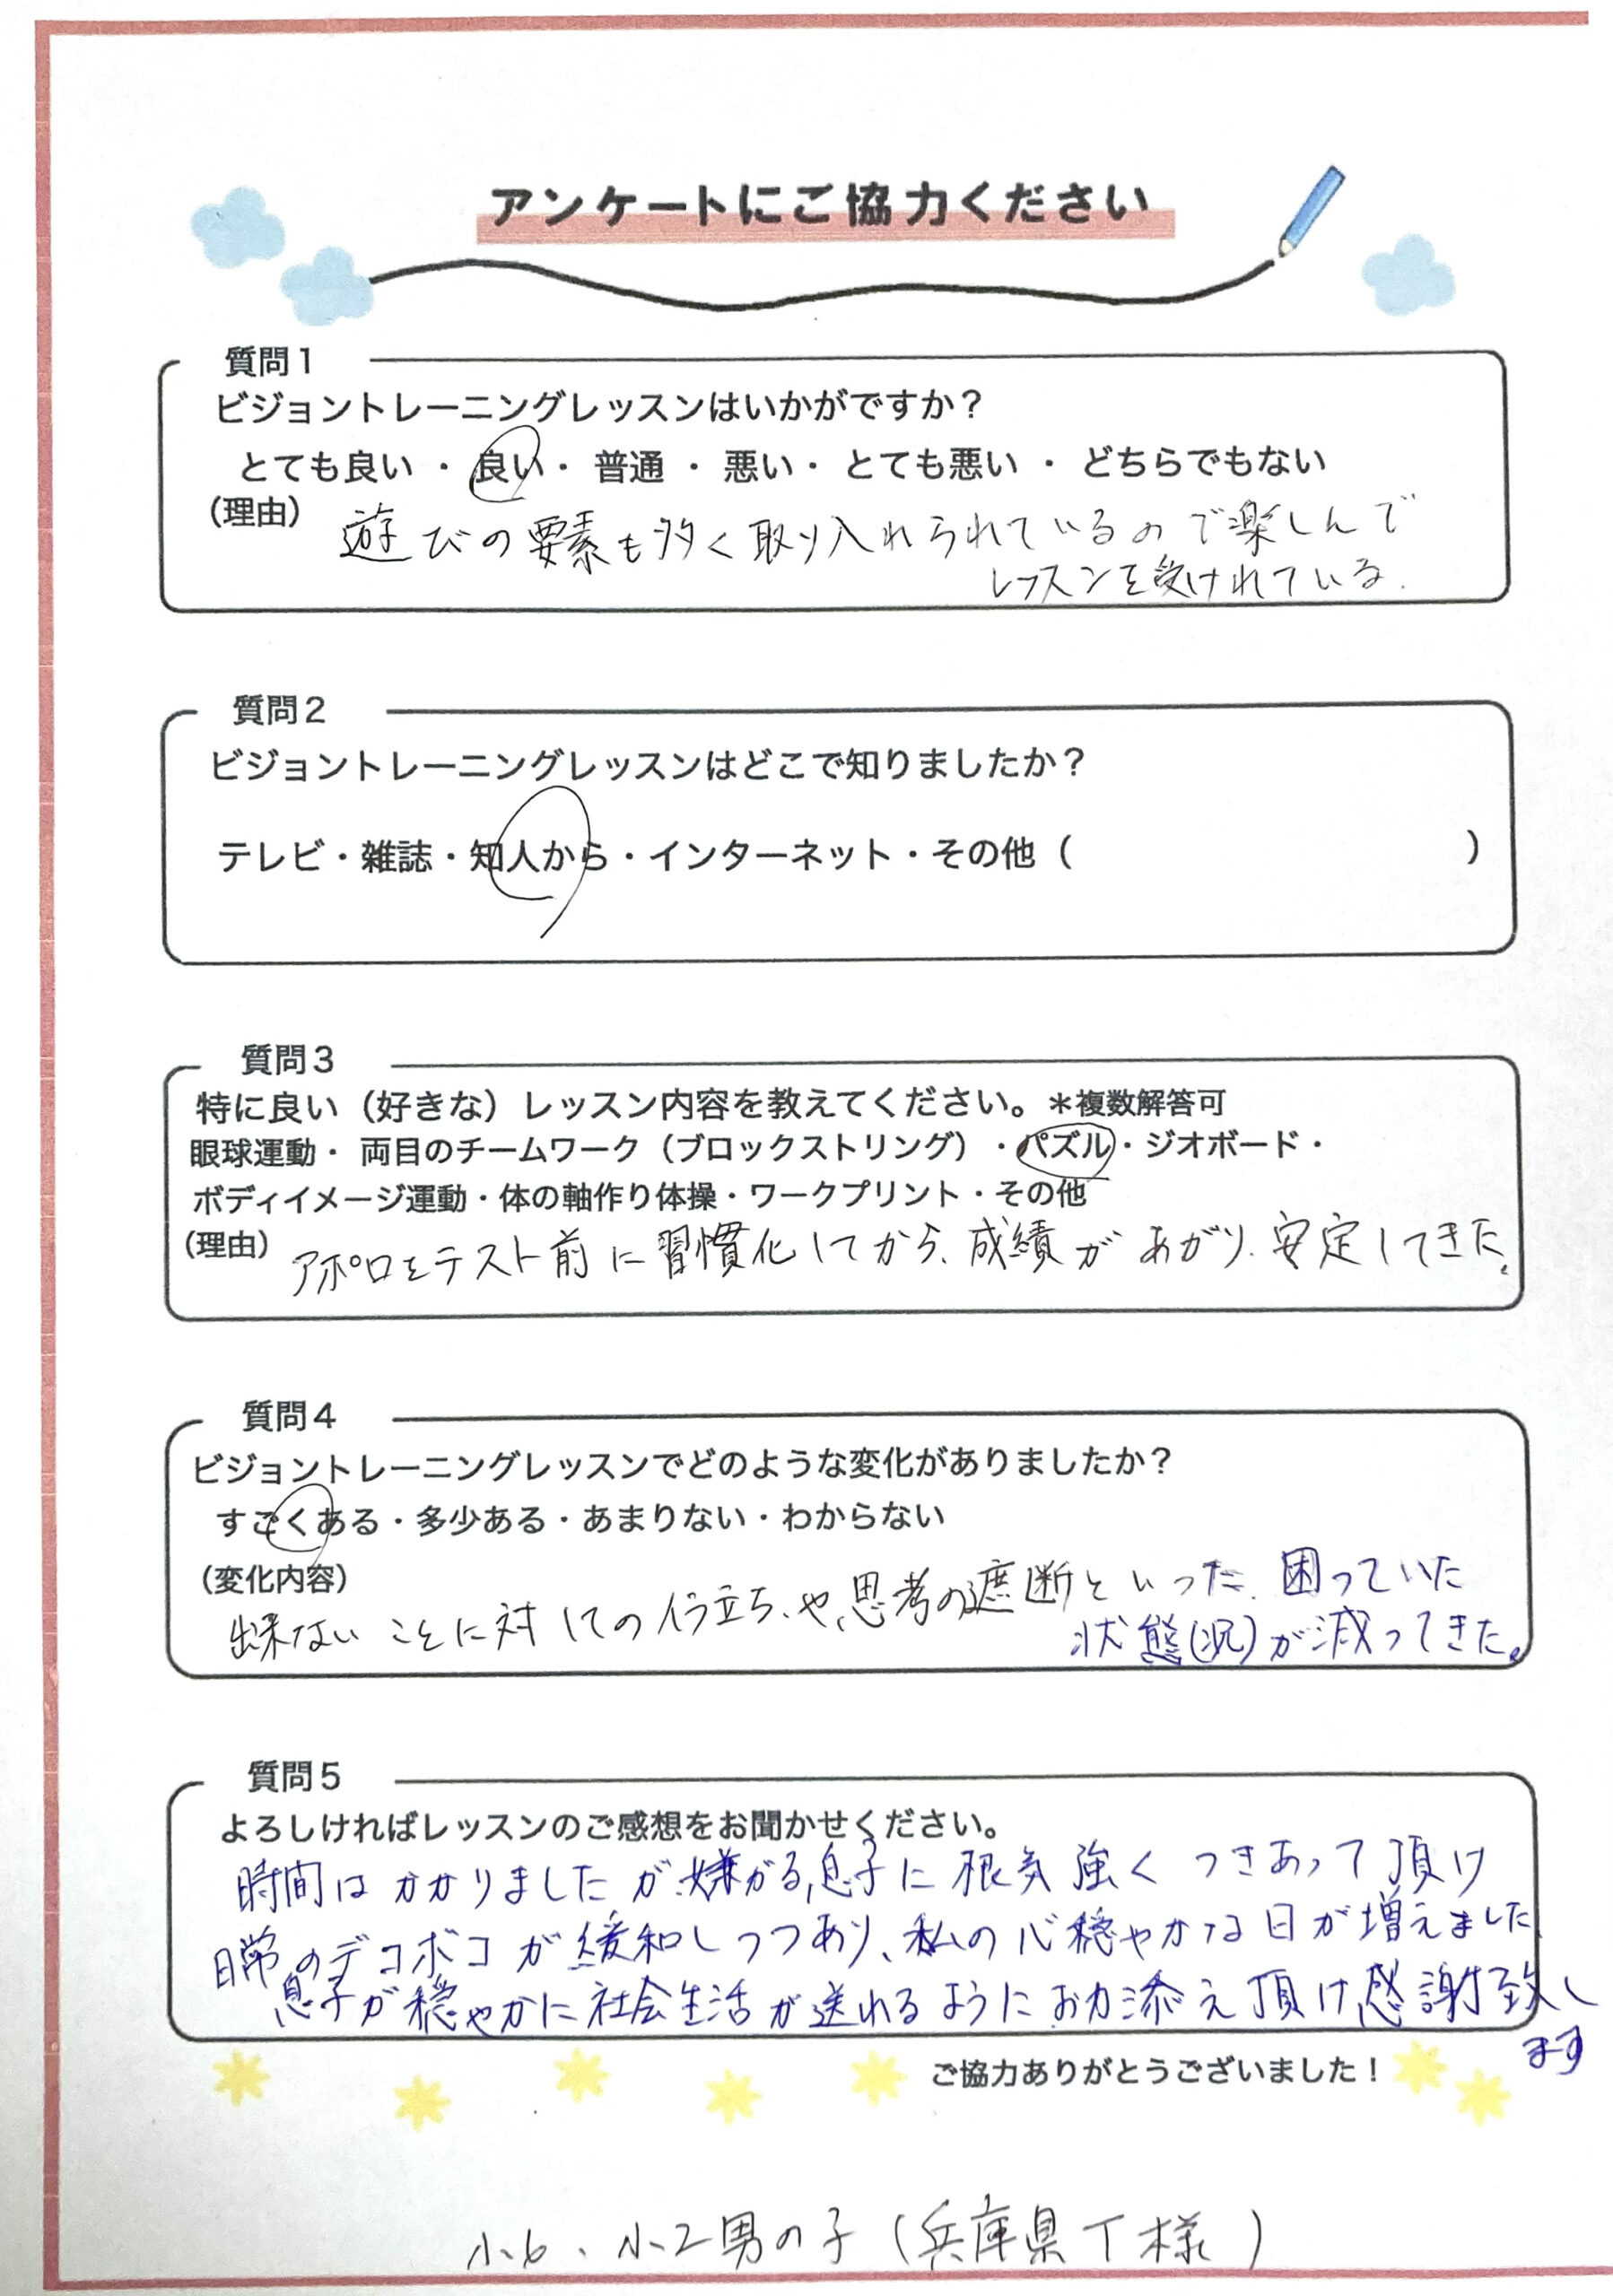 アンケートにご協力ください
質問1
ビジョントレーニングレッスンはいかがですか？
とても良い ・ 良い・ 普通 ・ 悪い・ とても悪い ・ どちらでもない
（理由）
遊びの要素も多く取り入れられているので楽しんで
レッスンを受けれている.
質問2
ビジョントレーニングレッスンはどこで知りましたか？
テレビ・雑誌・知人から・インターネット・その他（ ）
質問3
特に良い（好きな）レッスン内容を教えてください。＊複数解答可
眼球運動・ 両目のチームワーク（ブロックストリング）・パズル・ジオボード・
ボディイメージ運動・体の軸作り体操・ワークプリント・その他
（理由）
アポロをテスト前に習慣化してから、成績があがり、安定してきた。
質問4
ビジョントレーニングレッスンでどのような変化がありましたか？
すごくある・多少ある・あまりない・わからない
（変化内容）
出来ないことに対しての立ち、や、思考の遮断といった、困っていた
状態(況)が減ってきた。
質問5
よろしければレッスンのご感想をお聞かせください。
時間はかかりましたが、嫌がる息子に根気強くつきあって頂け
日常のデコボコが緩和しつつあり、私の心穏やかな日が増えました
息子が穏やかに社会生活が送れるようにお力添え頂け、感謝致し
ます
ご協力ありがとうございました！
小6、小2男の子（兵庫県T様）